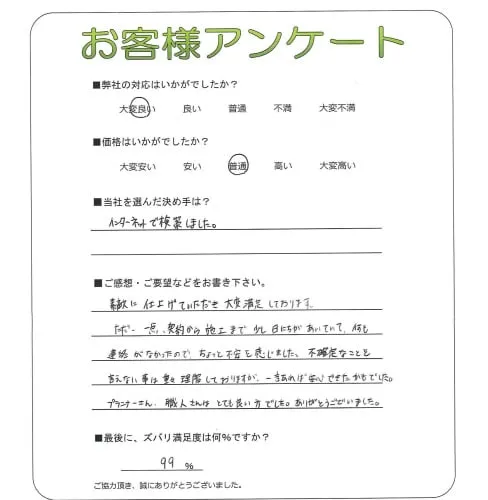 お客様アンケート
■弊社の対応はいかがでしたか？
大変良い 良い 普通 不満 大変不満
■価格はいかがでしたか？
大変安い 安い 普通 高い 大変高い
■当社を選んだ決め手は？
インターネットで検索しました。
■ご感想・ご要望などをお書き下さい。
素敵に仕上げていただき大変満足しております。
ただ一点、契約から施工まで少し日にちがあいていて、何も
連絡がなかったので、ちょっと不安を感じました。不確定なことを
言えない事は重々理解しておりますが、一言あれば安心できたかもでした。
プランナーさん、職人さんはとても良い方でした。ありがとうございました。
■最後に、ズバリ満足度は何％ですか？
99 %
ご協力頂き、誠にありがとうございました。